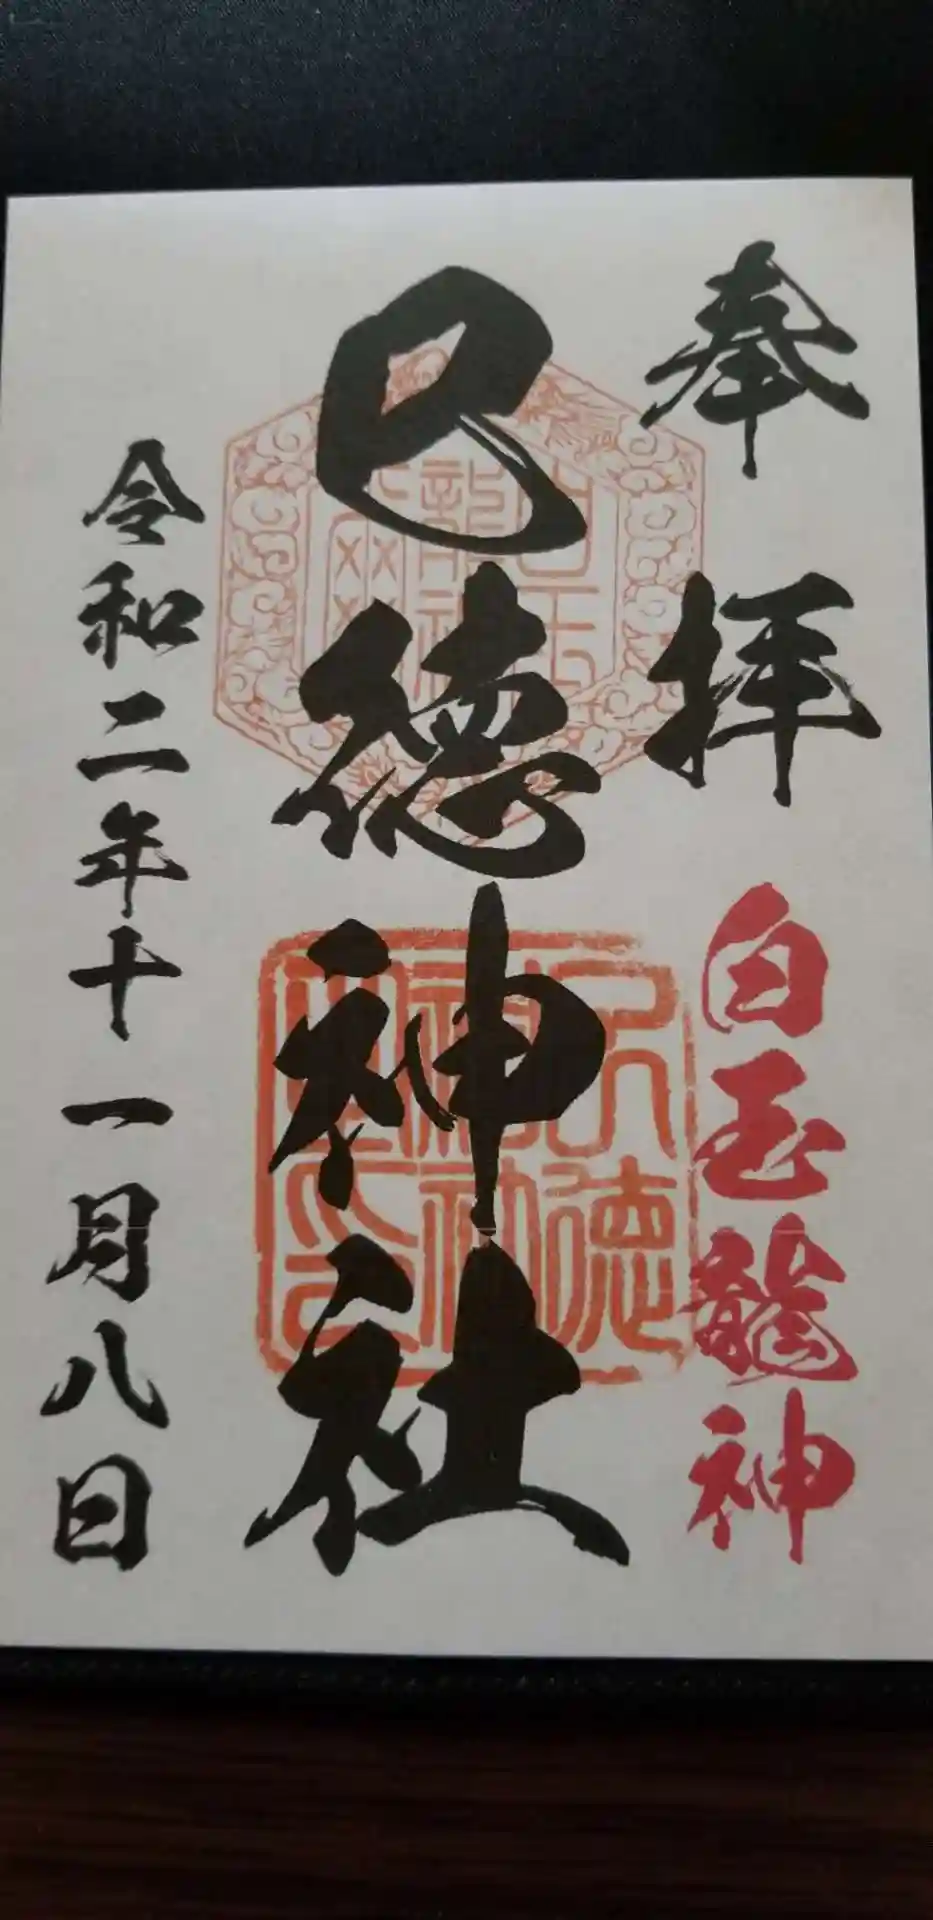 奉拝
白玉龍神
巳徳神社
令和二年十一月八日